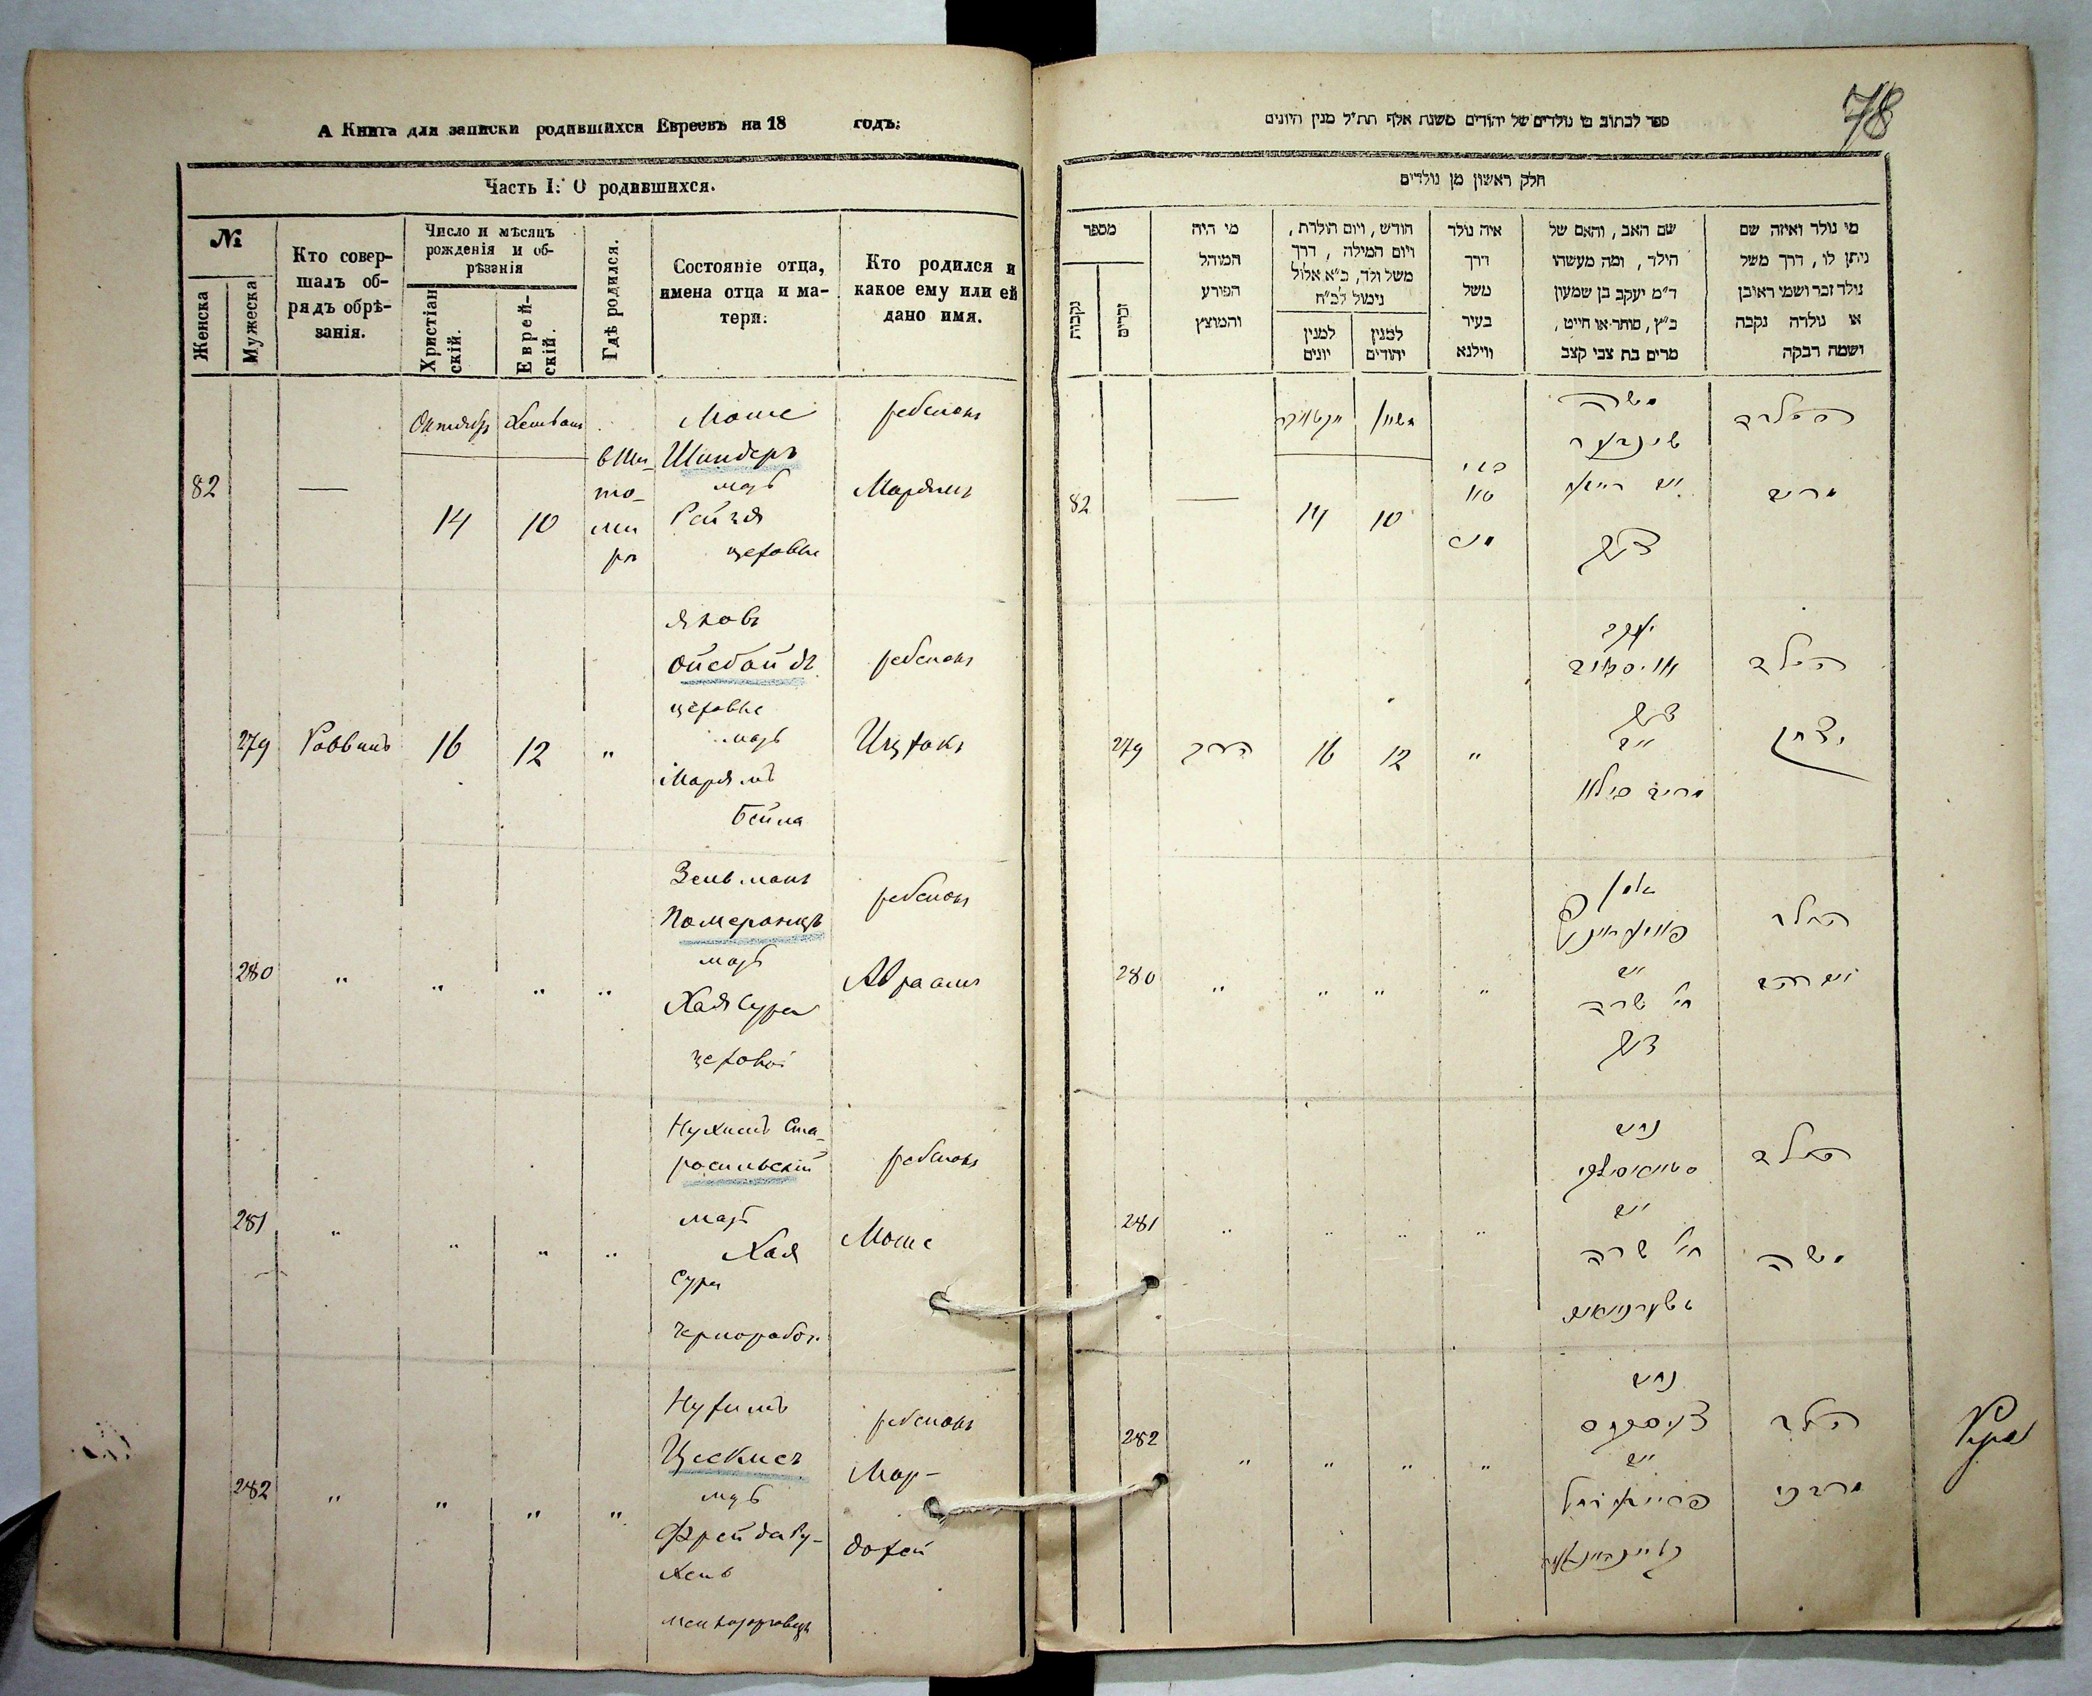 А Книга для записки родившихся Евреевъ на 18 годъ.
Часть I: О родившихся.
№
Женска
Мужеска
Кто совер-
шалъ об-
рядъ обрѣ-
занія.
Число и мѣсяцъ
рожденія и об-
рѣзанія
Христіан
скій.
Еврей-
скій.
Гдѣ родился.
Состояніе отца,
имена отца и ма-
тери.
Кто родился и
какое ему или ей
дано имя.
Октябрь
Хешванъ
82
—
14
10
в Жи-
то-
ми
рѣ
Моше
Шиндеръ
мать
Рейзя
цеховые
ребенокъ
Марьямъ
279
Раввинъ
16
12
"
Яковъ
Ойсбойдъ
цеховые
мать
Марьямъ
Бейла
ребенокъ
Ицхокъ
280
"
"
"
"
Зельманъ
Померанцъ
мать
Хая Сура
цеховой
ребенокъ
Авраамъ
281
"
"
"
"
Нухимъ Ста-
росильскій
мать
Хая
Сура
чернорабоч.
ребенокъ
Моше
282
"
"
"
"
Нухимъ
Цескисъ
мать
Фрейда Ру-
хель
ребенокъ
Мор-
дохей
78
ספר לכתוב מי נולדים של יהודים משנת אלף תת״ל מנין היונים
חלק ראשון מן נולדים
מי נולד ואיזה שם
ניתן לו, דרך משל
נילד זכר ושמי ראובן
או נולדה נקבה
ושמה רבקה
שם האב, והאם של
הילד, ומה מעשהו
ד״מ יעקב בן שמעון
כ״ץ, סוחר או חייט,
מרים בת צבי קצב
איה נולד
דרך
משל
בעיר
ווילנא
חודש, ויום הולדת,
ויום המילה, דרך
משל ולד, כ״א אלול
נימול לכ״ח
למנין
יהודים
למנין
יונים
מי היה
המוהל
הפורע
והמוצץ
מספר
זכרים
נקבות
הילד
מרים
משה
שינדער
חשון
10
14
—
82
הילד
יצחק
יעקב
אויסבויד
מרים ביילא
"
12
16
הרב
279
הילד
אברהם
זלמן
פאמעראנץ
חי׳ שרה
"
"
"
"
280
הילד
משה
נחום
חי׳ שרה
"
"
"
"
281
הילד
מרדכי
נחום
צעסקיס
פריידא רחל
"
"
"
"
282